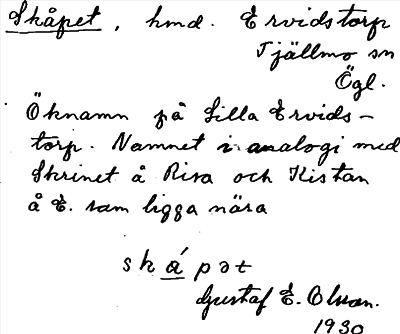 Skåpet, hmd. Ervidstorp
Tjällmo sn
Ögl.
Öknamn på Lilla Ervids-
torp. Namnet i analogi med
Skrinet å Risa och Kistan
å E. som ligga nära
skápət
Gustaf E. Olsson.
1930